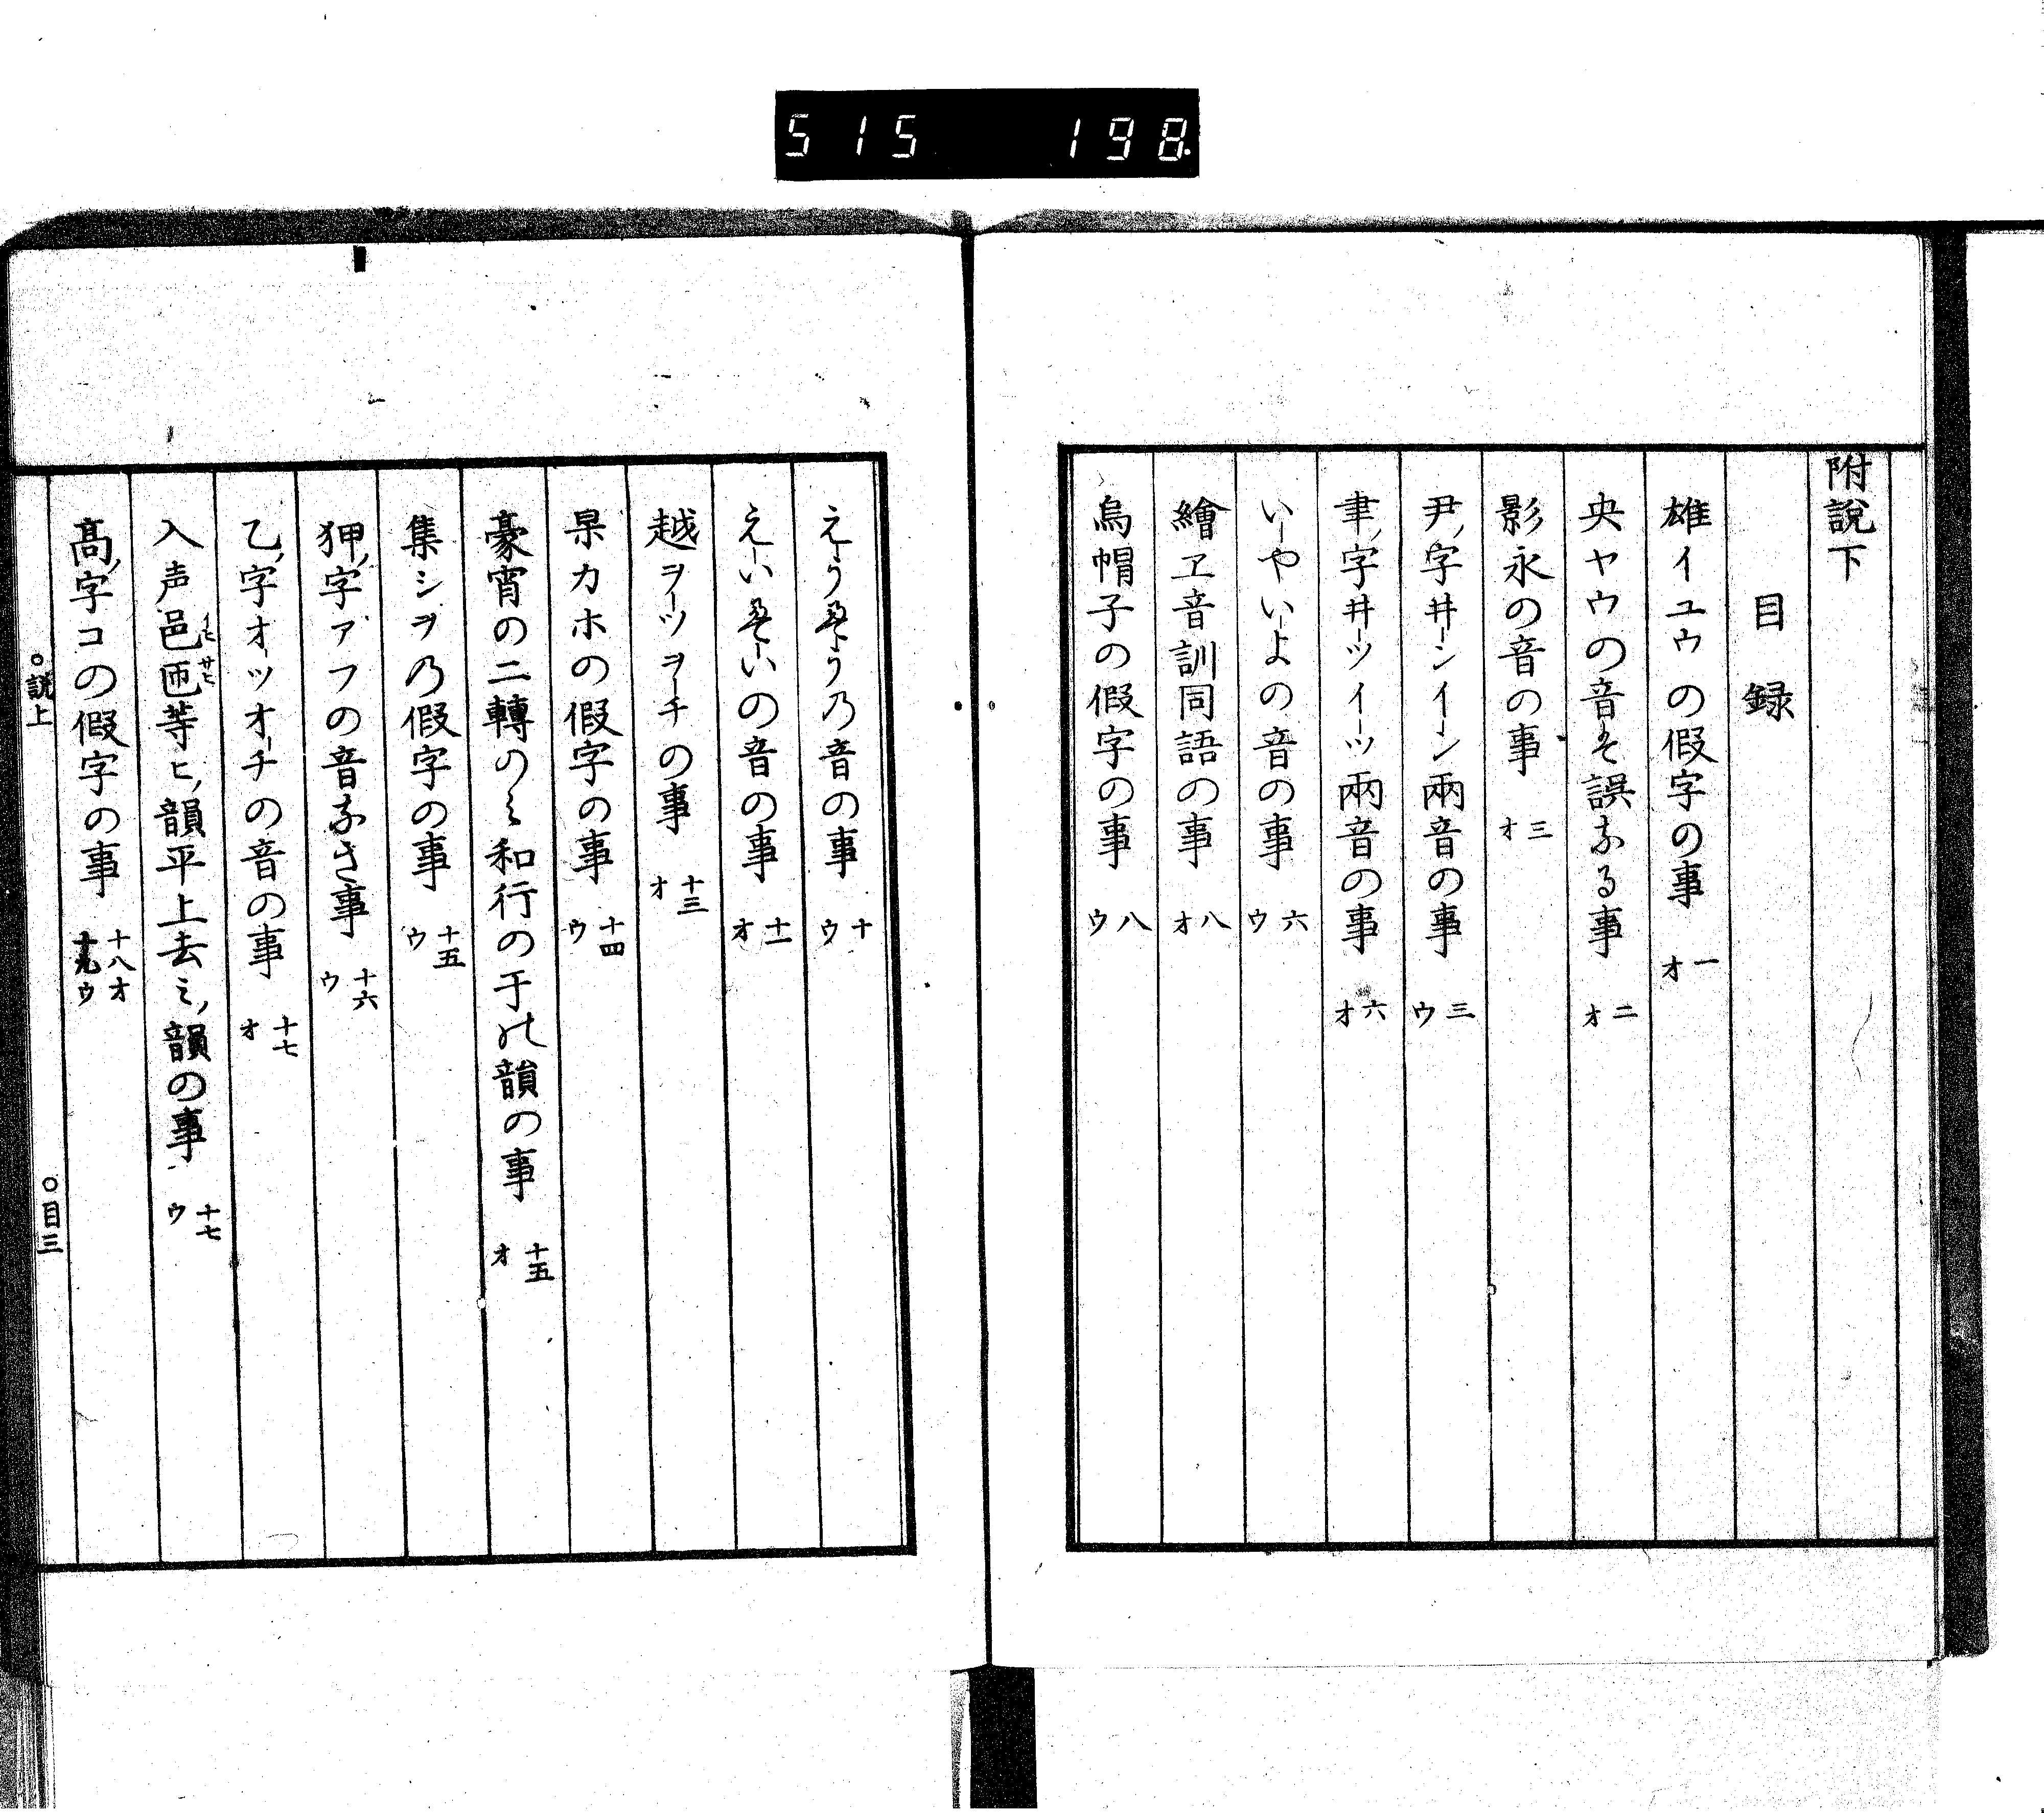 515 198
附說下
目録
雄イユウの假字の事 一オ
央ヤウの音は誤なる事 二オ
影永の音の事 三オ
尹ノ字井ーンイーン兩音の事 三ウ
聿ノ字井ーツイーツ兩音の事 六オ
いーやいーよの音の事 六ウ
繪ヱ音訓同語の事 八オ
烏帽子の假字の事 八ウ
えーうゑーう乃音の事 十ウ
えーいゑーいの音の事 十一オ
越ヲーツヲーチの事 十三オ
杲カホの假字の事 十四ウ
豪宵の二轉のミ和行の于の韻の事 十五オ
集シヲ乃假字の事 十五ウ
狎ノ字アフの音なき事 十六ウ
乙ノ字オーツオーチの音の事 十七オ
入声邑イヒ匝サヒ等ヒノ韻平上去ミノ韻の事 十七ウ
髙ノ字コの假字の事 十八オ ウ
○說上 ○目三